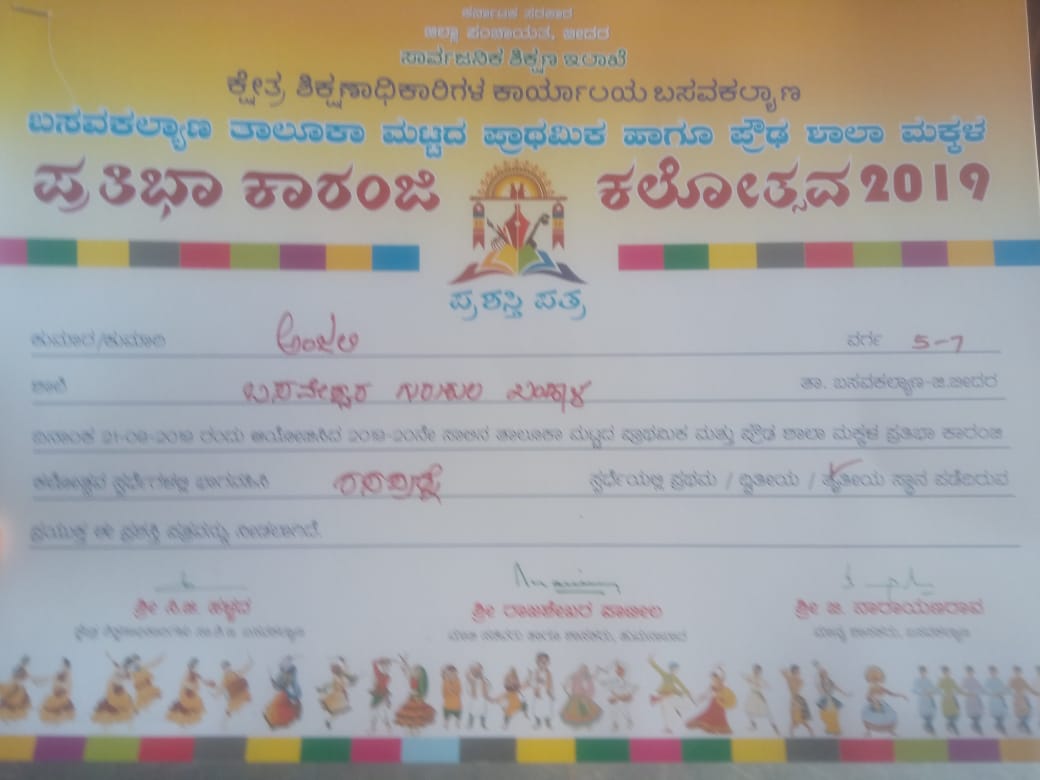 ಕರ್ನಾಟಕ ಸರಕಾರ
ಜಿಲ್ಲಾ ಪಂಚಾಯತ, ಬೀದರ
ಸಾರ್ವಜನಿಕ ಶಿಕ್ಷಣ ಇಲಾಖೆ
ಕ್ಷೇತ್ರ ಶಿಕ್ಷಣಾಧಿಕಾರಿಗಳ ಕಾರ್ಯಾಲಯ ಬಸವಕಲ್ಯಾಣ
ಬಸವಕಲ್ಯಾಣ ತಾಲೂಕಾ ಮಟ್ಟದ ಪ್ರಾಥಮಿಕ ಹಾಗೂ ಪ್ರೌಢ ಶಾಲಾ ಮಕ್ಕಳ
ಪ್ರತಿಭಾ ಕಾರಂಜಿ ಕಲೋತ್ಸವ 2019
ಪ್ರಶಸ್ತಿ ಪತ್ರ
ಕುಮಾರ/ಕುಮಾರಿ ಅಂಜಲಿ ವರ್ಗ 5-7
ಶಾಲೆ ಬಸವೇಶ್ವರ ಗುರುಕುಲ ತಾ. ಬಸವಕಲ್ಯಾಣ-ಜಿ.ಬೀದರ
ದಿನಾಂಕ 21-09-2019 ರಂದು ಆಯೋಜಿಸಿದ 2019-20ನೇ ಸಾಲಿನ ತಾಲೂಕಾ ಮಟ್ಟದ ಪ್ರಾಥಮಿಕ ಮತ್ತು ಪ್ರೌಢ ಶಾಲಾ ಮಕ್ಕಳ ಪ್ರತಿಭಾ ಕಾರಂಜಿ
ಕಲೋತ್ಸವ ಸ್ಪರ್ಧೆಗಳಲ್ಲಿ ಭಾಗವಹಿಸಿ ರಸಪ್ರಶ್ನೆ ಸ್ಪರ್ಧೆಯಲ್ಲಿ ಪ್ರಥಮ / ದ್ವಿತೀಯ / ತೃತೀಯ ಸ್ಥಾನ ಪಡೆದಿರುವ
ಪ್ರಯುಕ್ತ ಈ ಪ್ರಶಸ್ತಿ ಪತ್ರವನ್ನು ನೀಡಲಾಗಿದೆ.
ಶ್ರೀ ಸಿ.ಜಿ. ಹಳ್ಳದ ಶ್ರೀ ರಾಜಶೇಖರ ಪಾಟೀಲ ಶ್ರೀ ಬಿ. ನಾರಾಯಣರಾವ
ಬಸವಕಲ್ಯಾಣ ಮಾಜಿ ಸಚಿವರು ಹಾಗೂ ಶಾಸಕರು, ಹುಮನಾಬಾದ ಮಾನ್ಯ ಶಾಸಕರು, ಬಸವಕಲ್ಯಾಣ